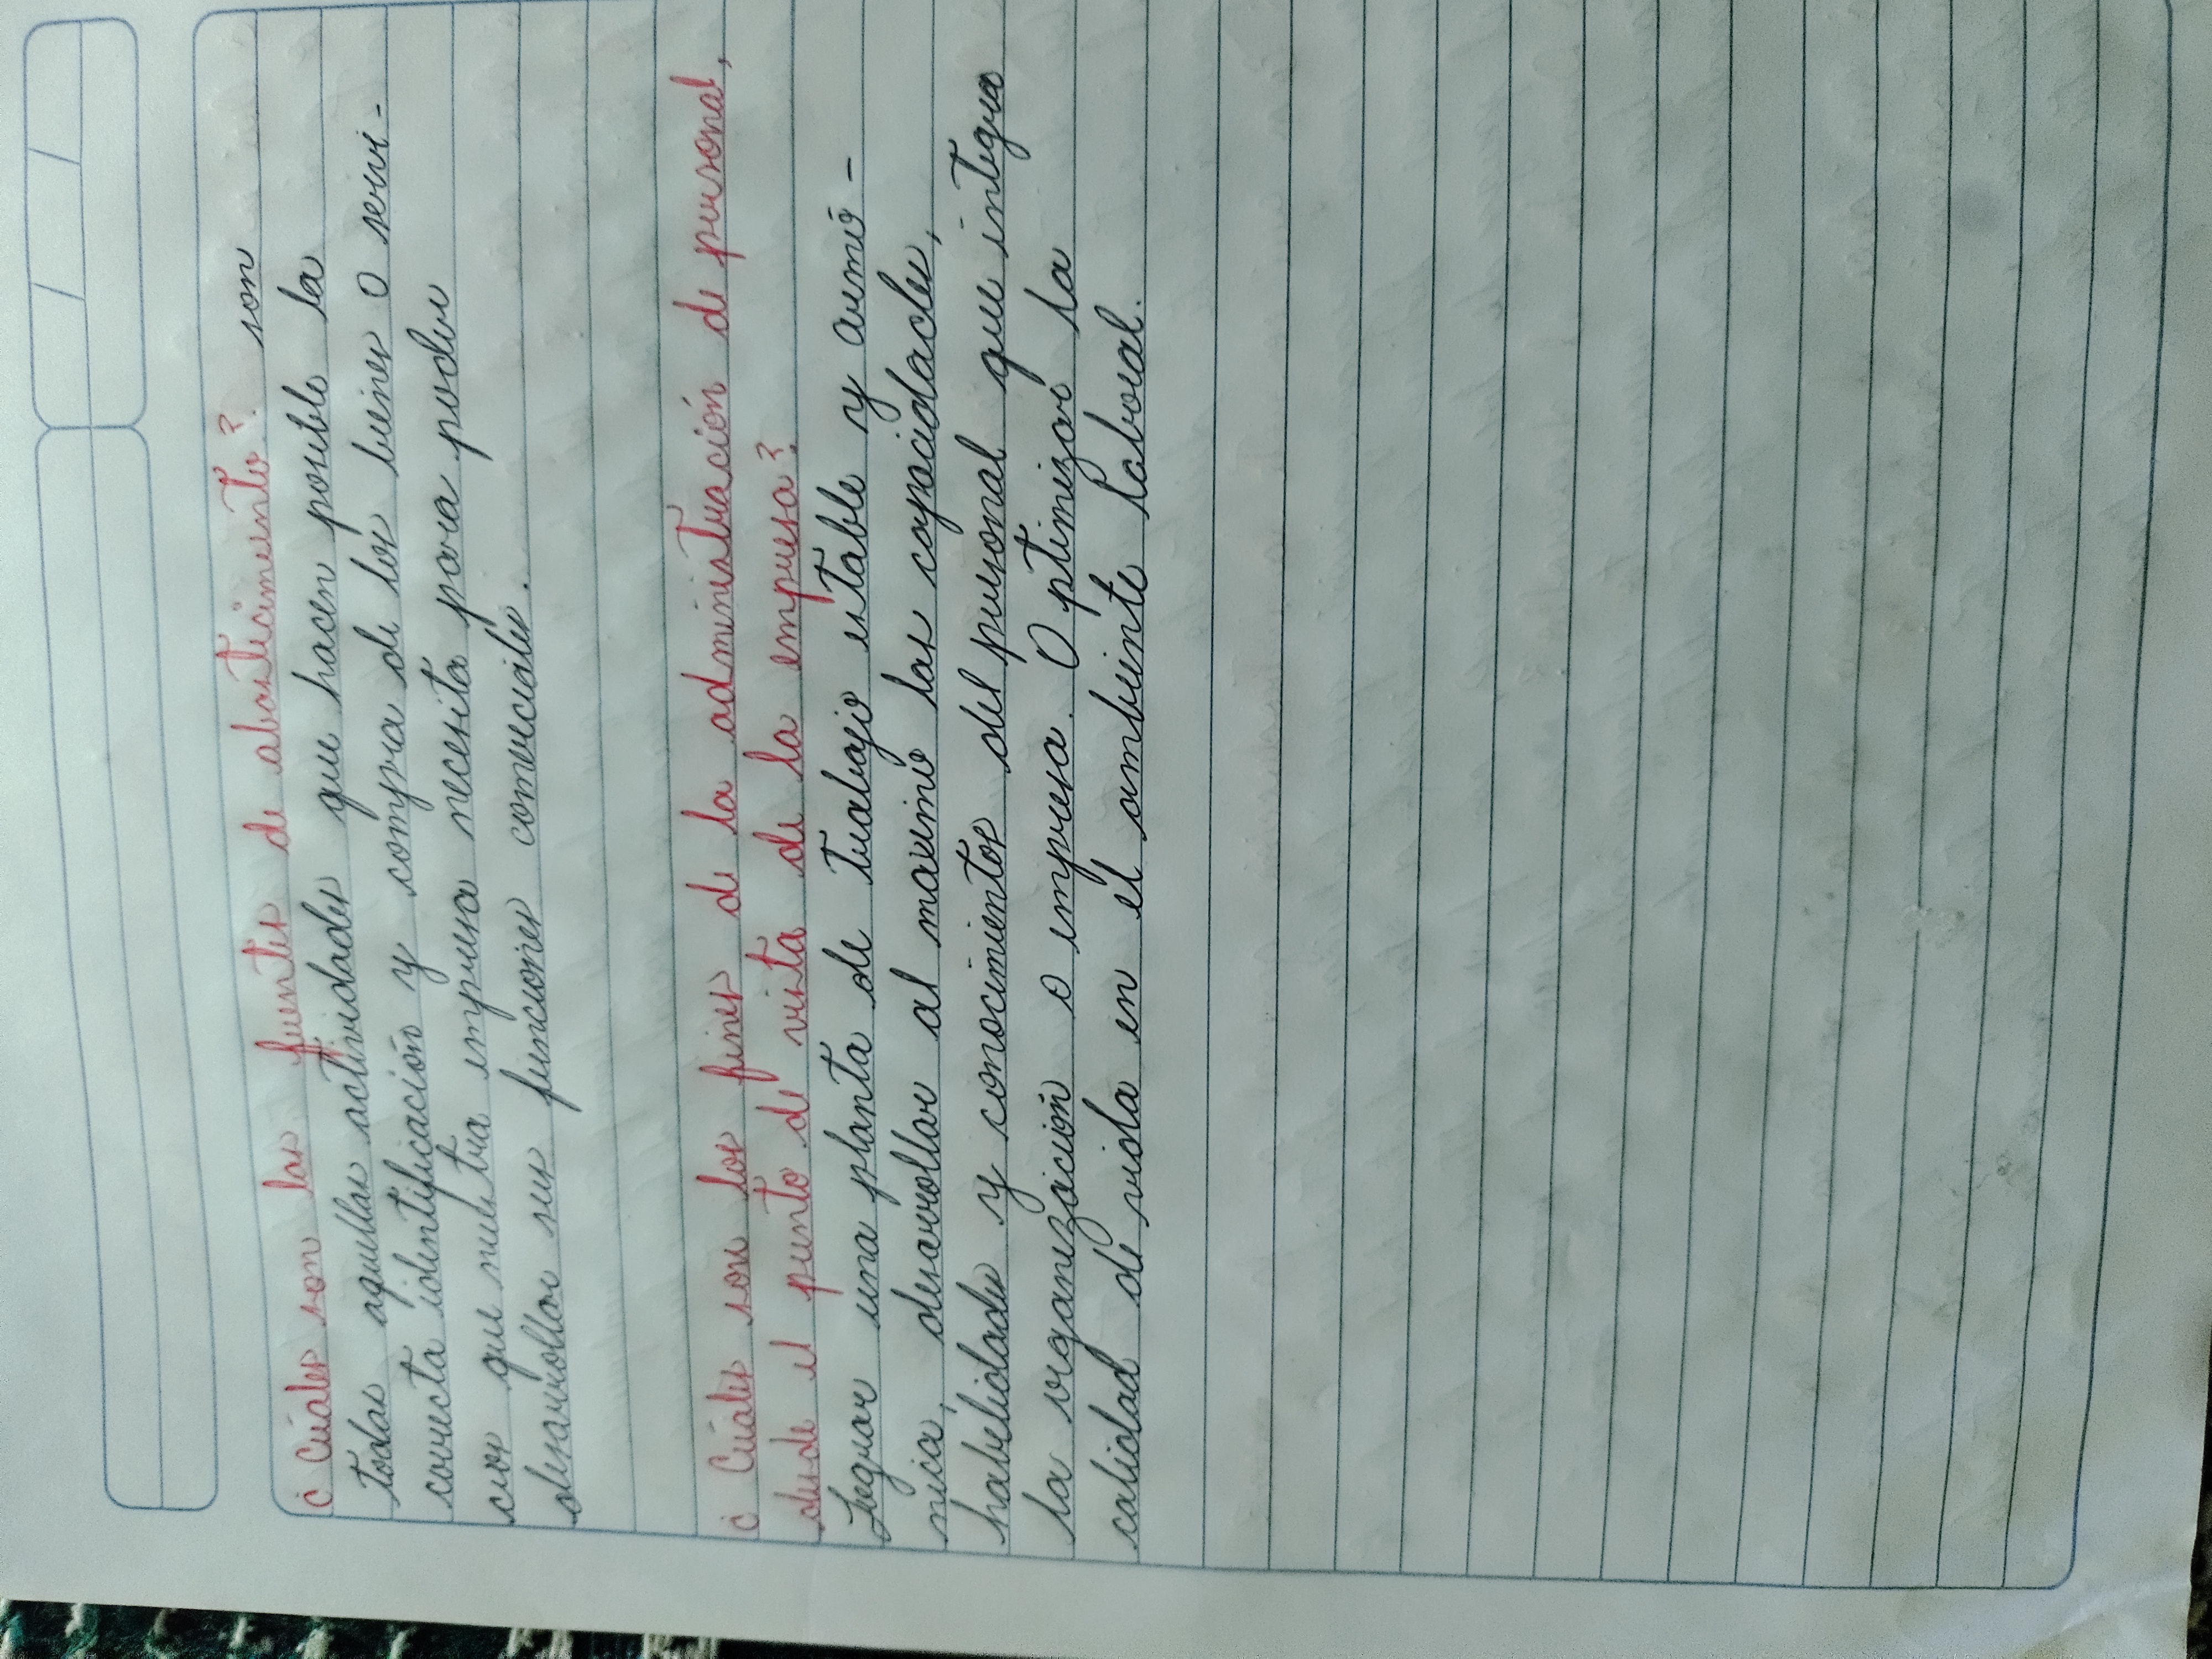 ¿Cuáles son las fuentes de abasticimiento? son
todas aquellas actividades que hacen posible la
correcta identificación y compra de los bienes o servi-
cios que nuestra empresa necesita para poder
desarrollar sus funciones comerciales.
¿Cuáles son los fines de la administración de personal,
desde el punto de vista de la empresa?
Lograr una planta de trabajo estable y armó-
nica, desarrollar al maximo las capacidades,
habilidades y conocimientos del personal que integra
la organización o empresa. Optimizar la
calidad de vida en el ambiente laboral.